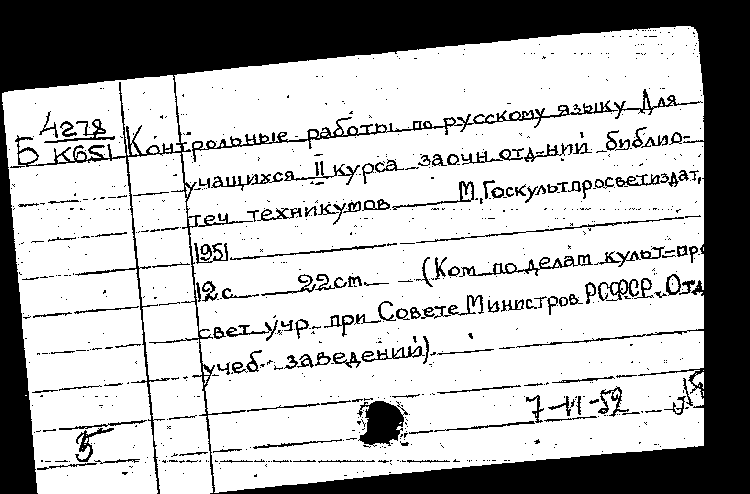 Б 4278
К651
Контрольные работы по русскому языку Для
учащихся II курса заочн. отд-ний библио-
теч. техникумов. М., Госкультпросветиздат,
1951
12 с. 22 ст. (Ком. по делам культ-про
свет. учр. при Совете Министров РСФСР. Отд
учеб. заведений).
7-VI-52
5